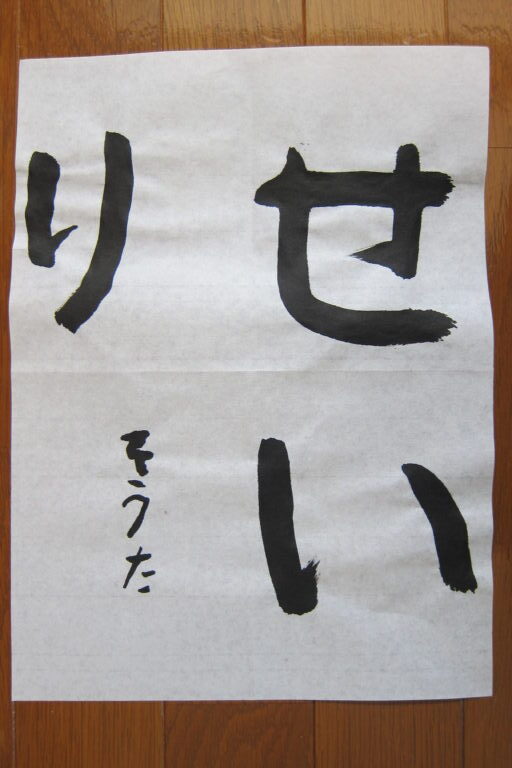 せい
り
そうた